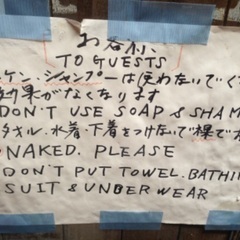 お客様へ
TO GUESTS
ケン、シャンプーは使わないでく
効果がなくなります
DON'T USE SOAP & SHAM
タオル、水着、下着をつけないで裸で
NAKED. PLEASE
DON'T PUT TOWEL. BATHIN
SUIT & UNDER WEAR